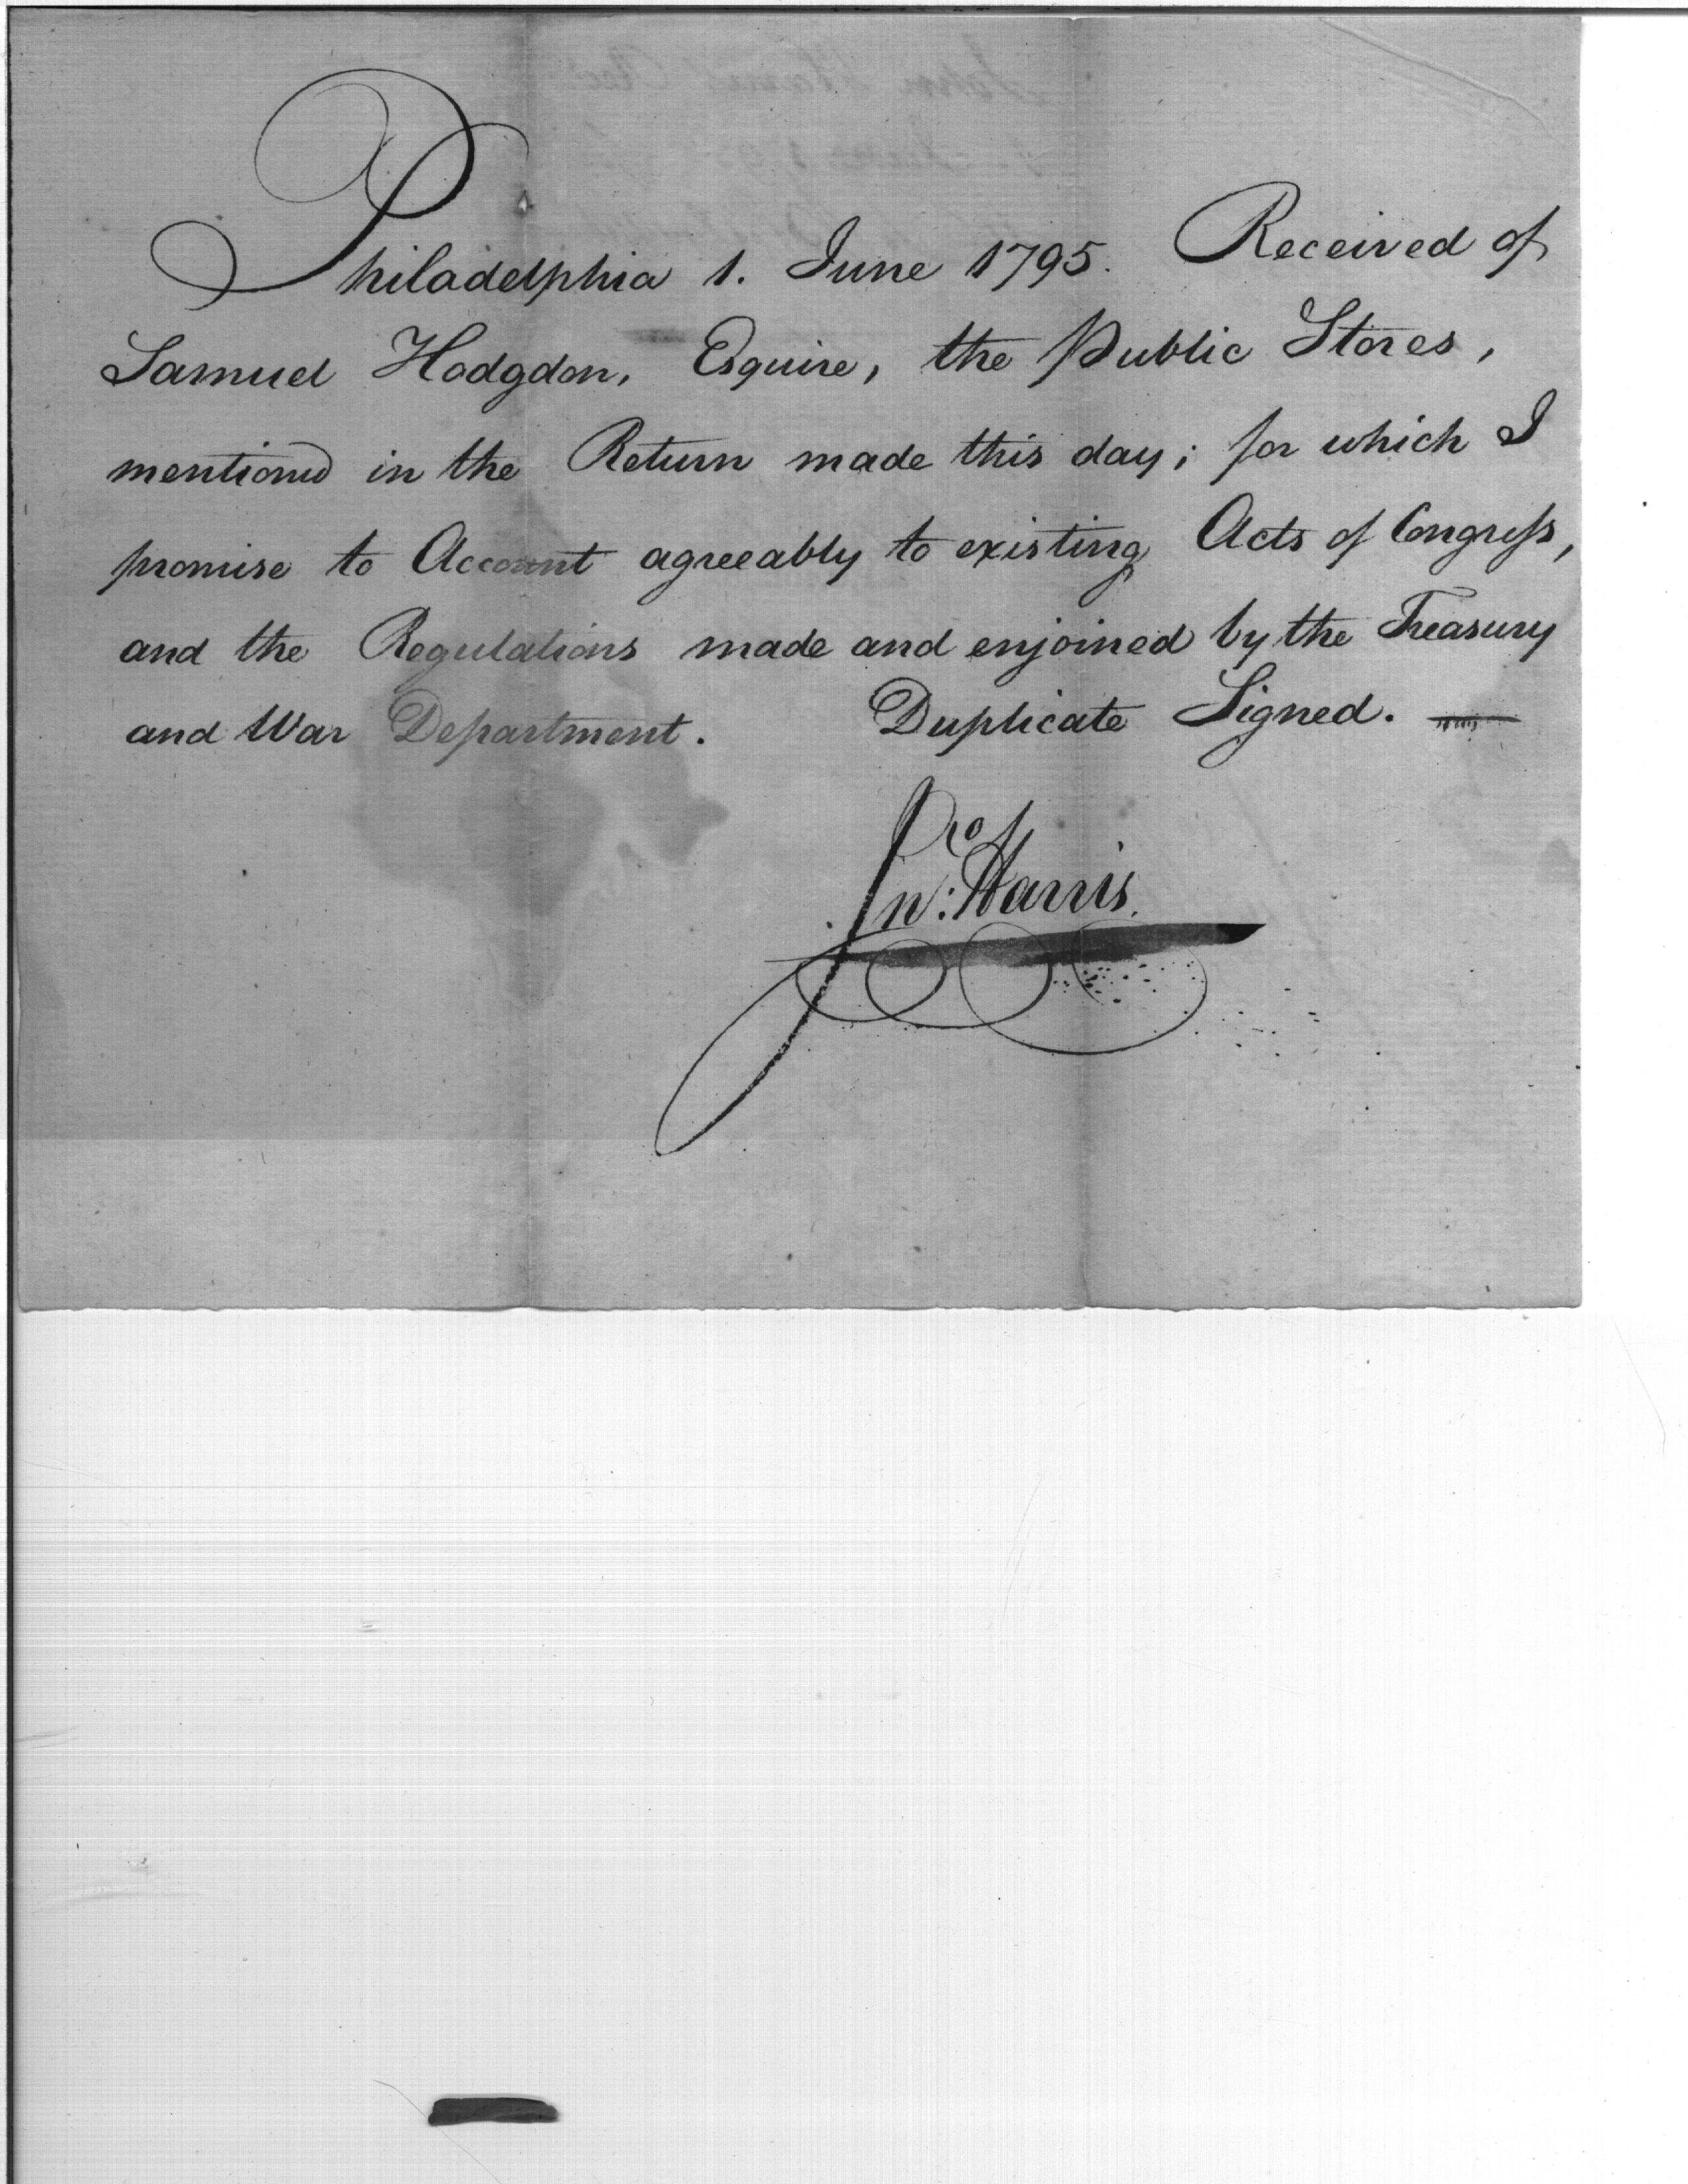 Philadelphia 1. June 1795. Received of
Samuel Hodgdon, Esquire, the Public Stores,
mentioned in the Return made this day; for which I
promise to Account agreeably to existing Acts of Congress,
and the Regulations made and enjoined by the Treasury
and War Department. Duplicate Signed.
Jno: Harris.